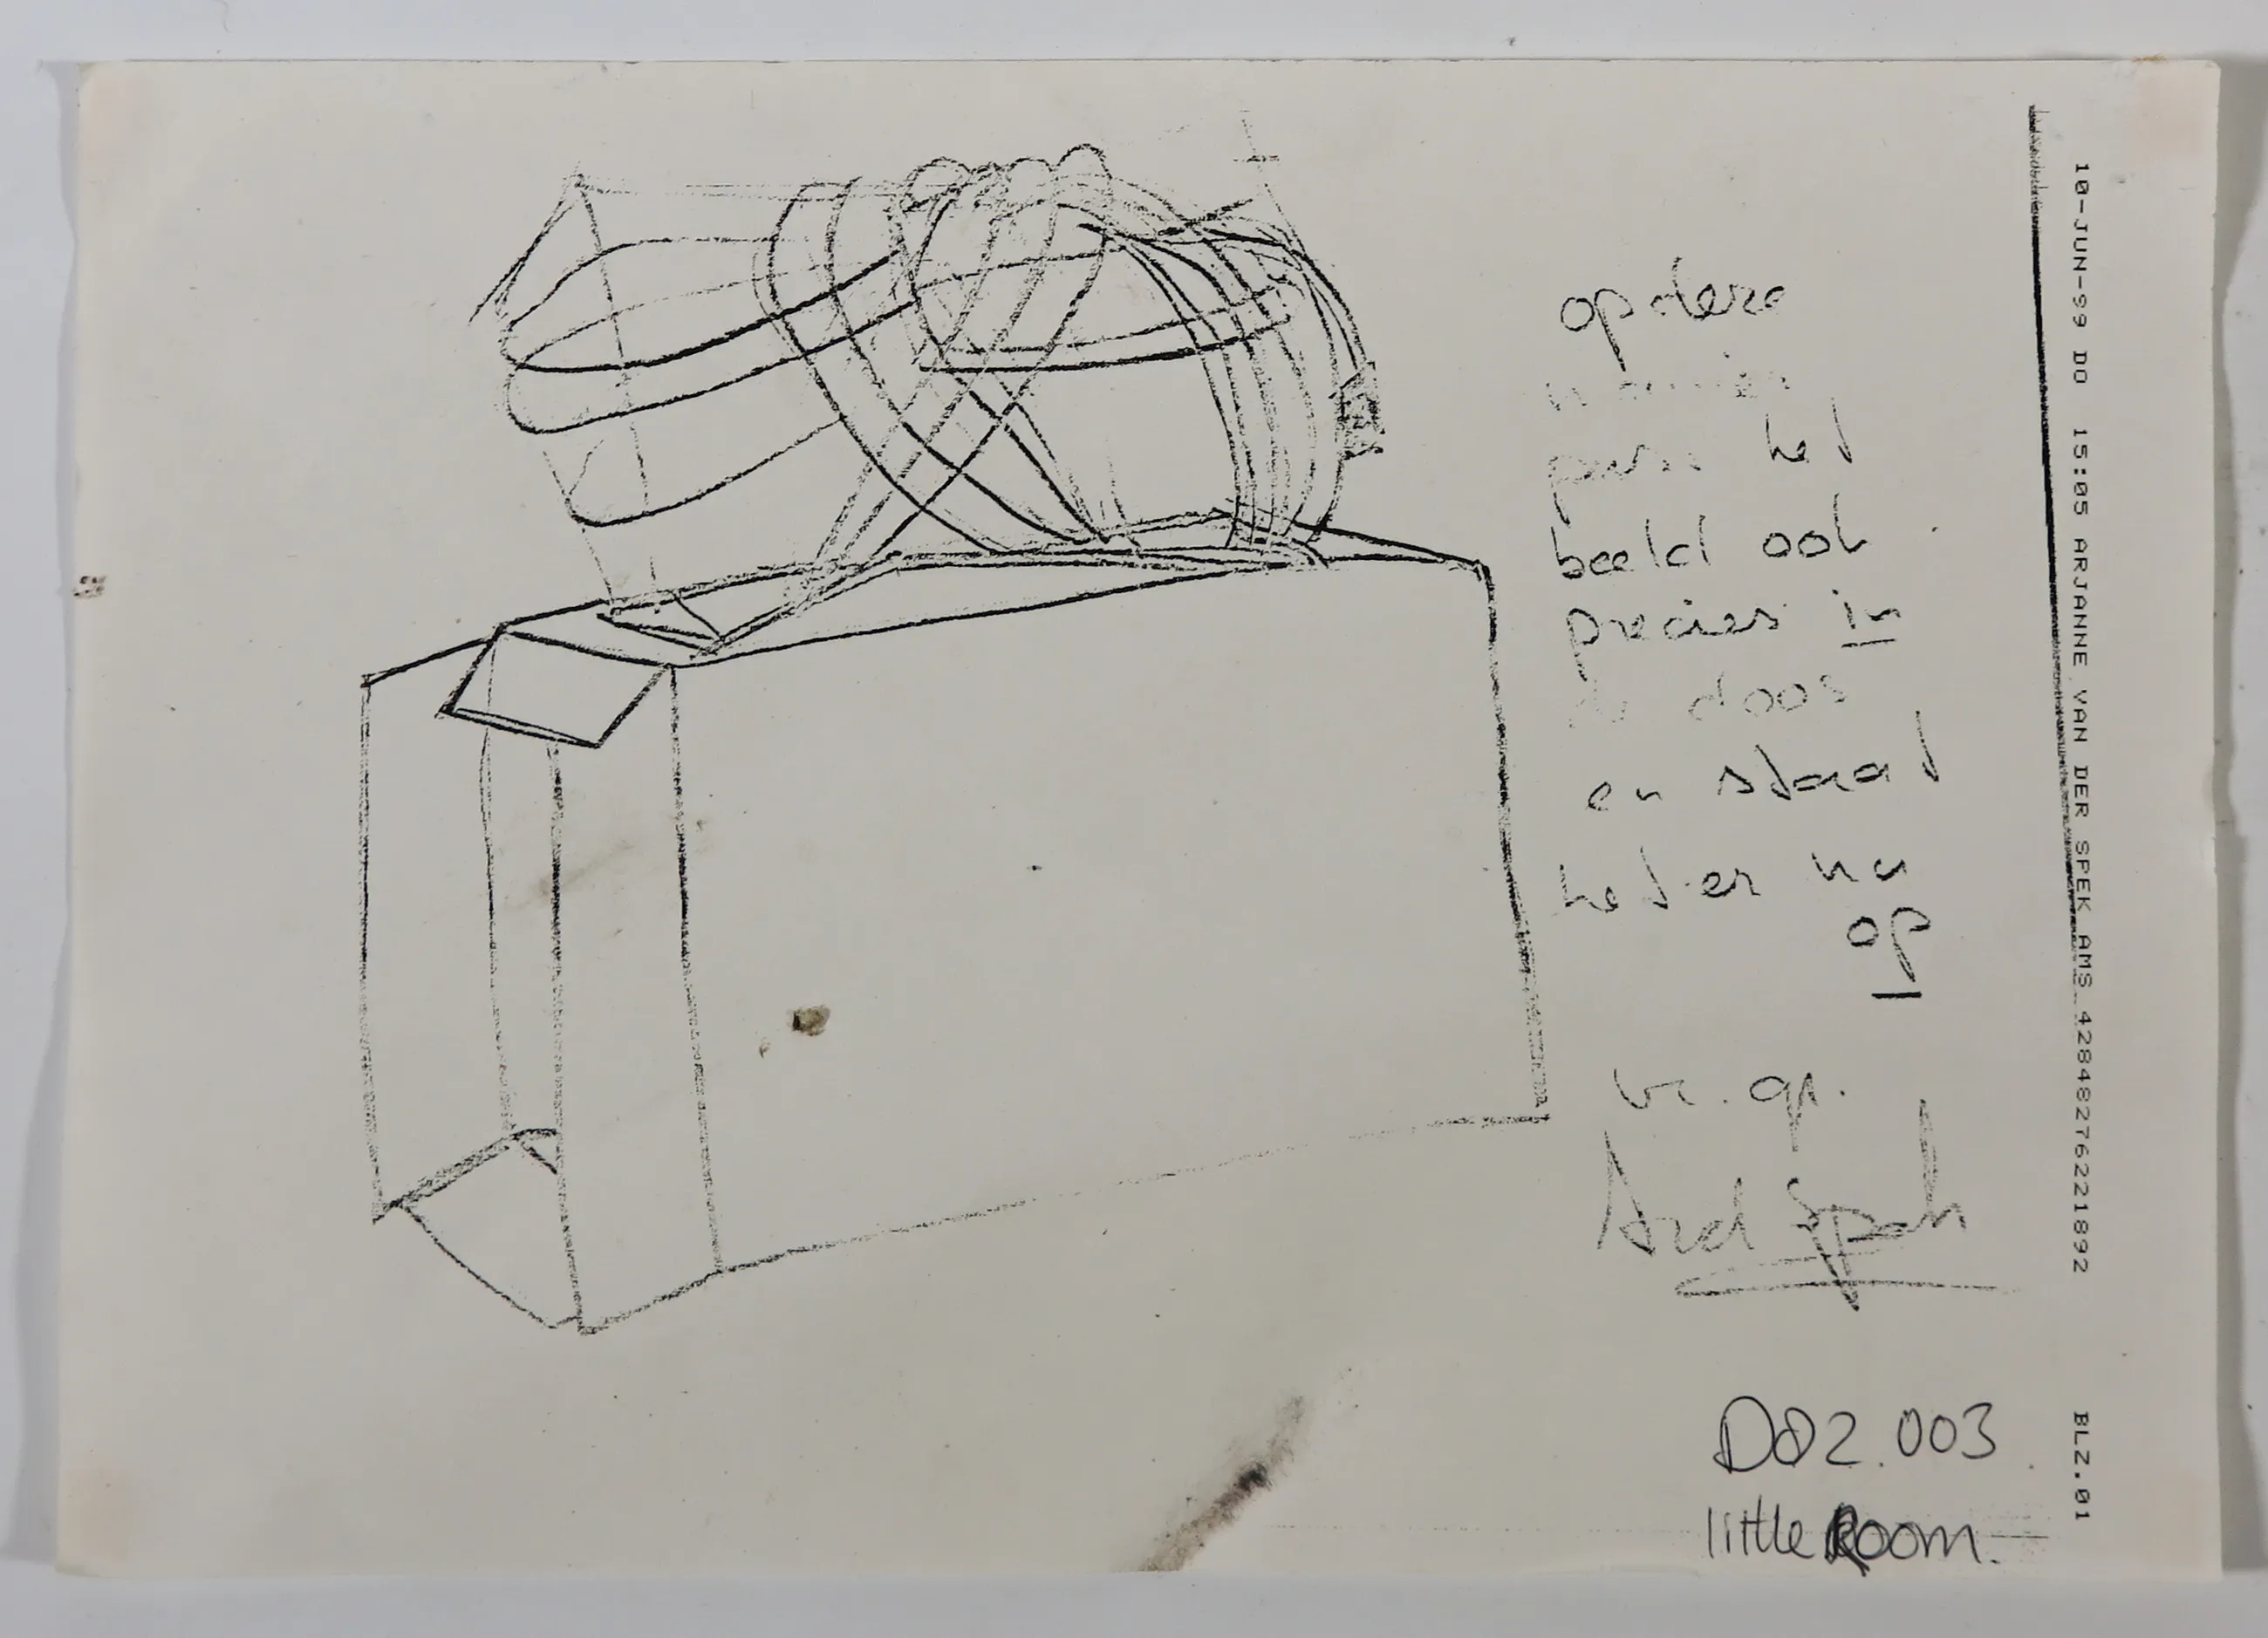 op deze
manier
past het
beeld ook
precies in
de doos
en staat
het er nu
op
vr. gr.
D02.003
little Room.
10-JUN-99 DO 15:05 ARJANNE VAN DER SPEK AMS 42848276221892 BLZ.01